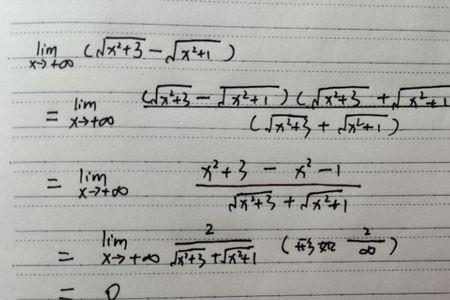 lim x→+∞ (√(x²+3) − √(x²+1))
= lim x→+∞ (√(x²+3) − √(x²+1))(√(x²+3) + √(x²+1) / (√(x²+3) + √(x²+1))
= lim x→+∞ x²+3 − x²−1 / √(x²+3) + √(x²+1)
= lim x→+∞ 2 / √(x²+3) + √(x²+1) (形如 2/∞)
= 0